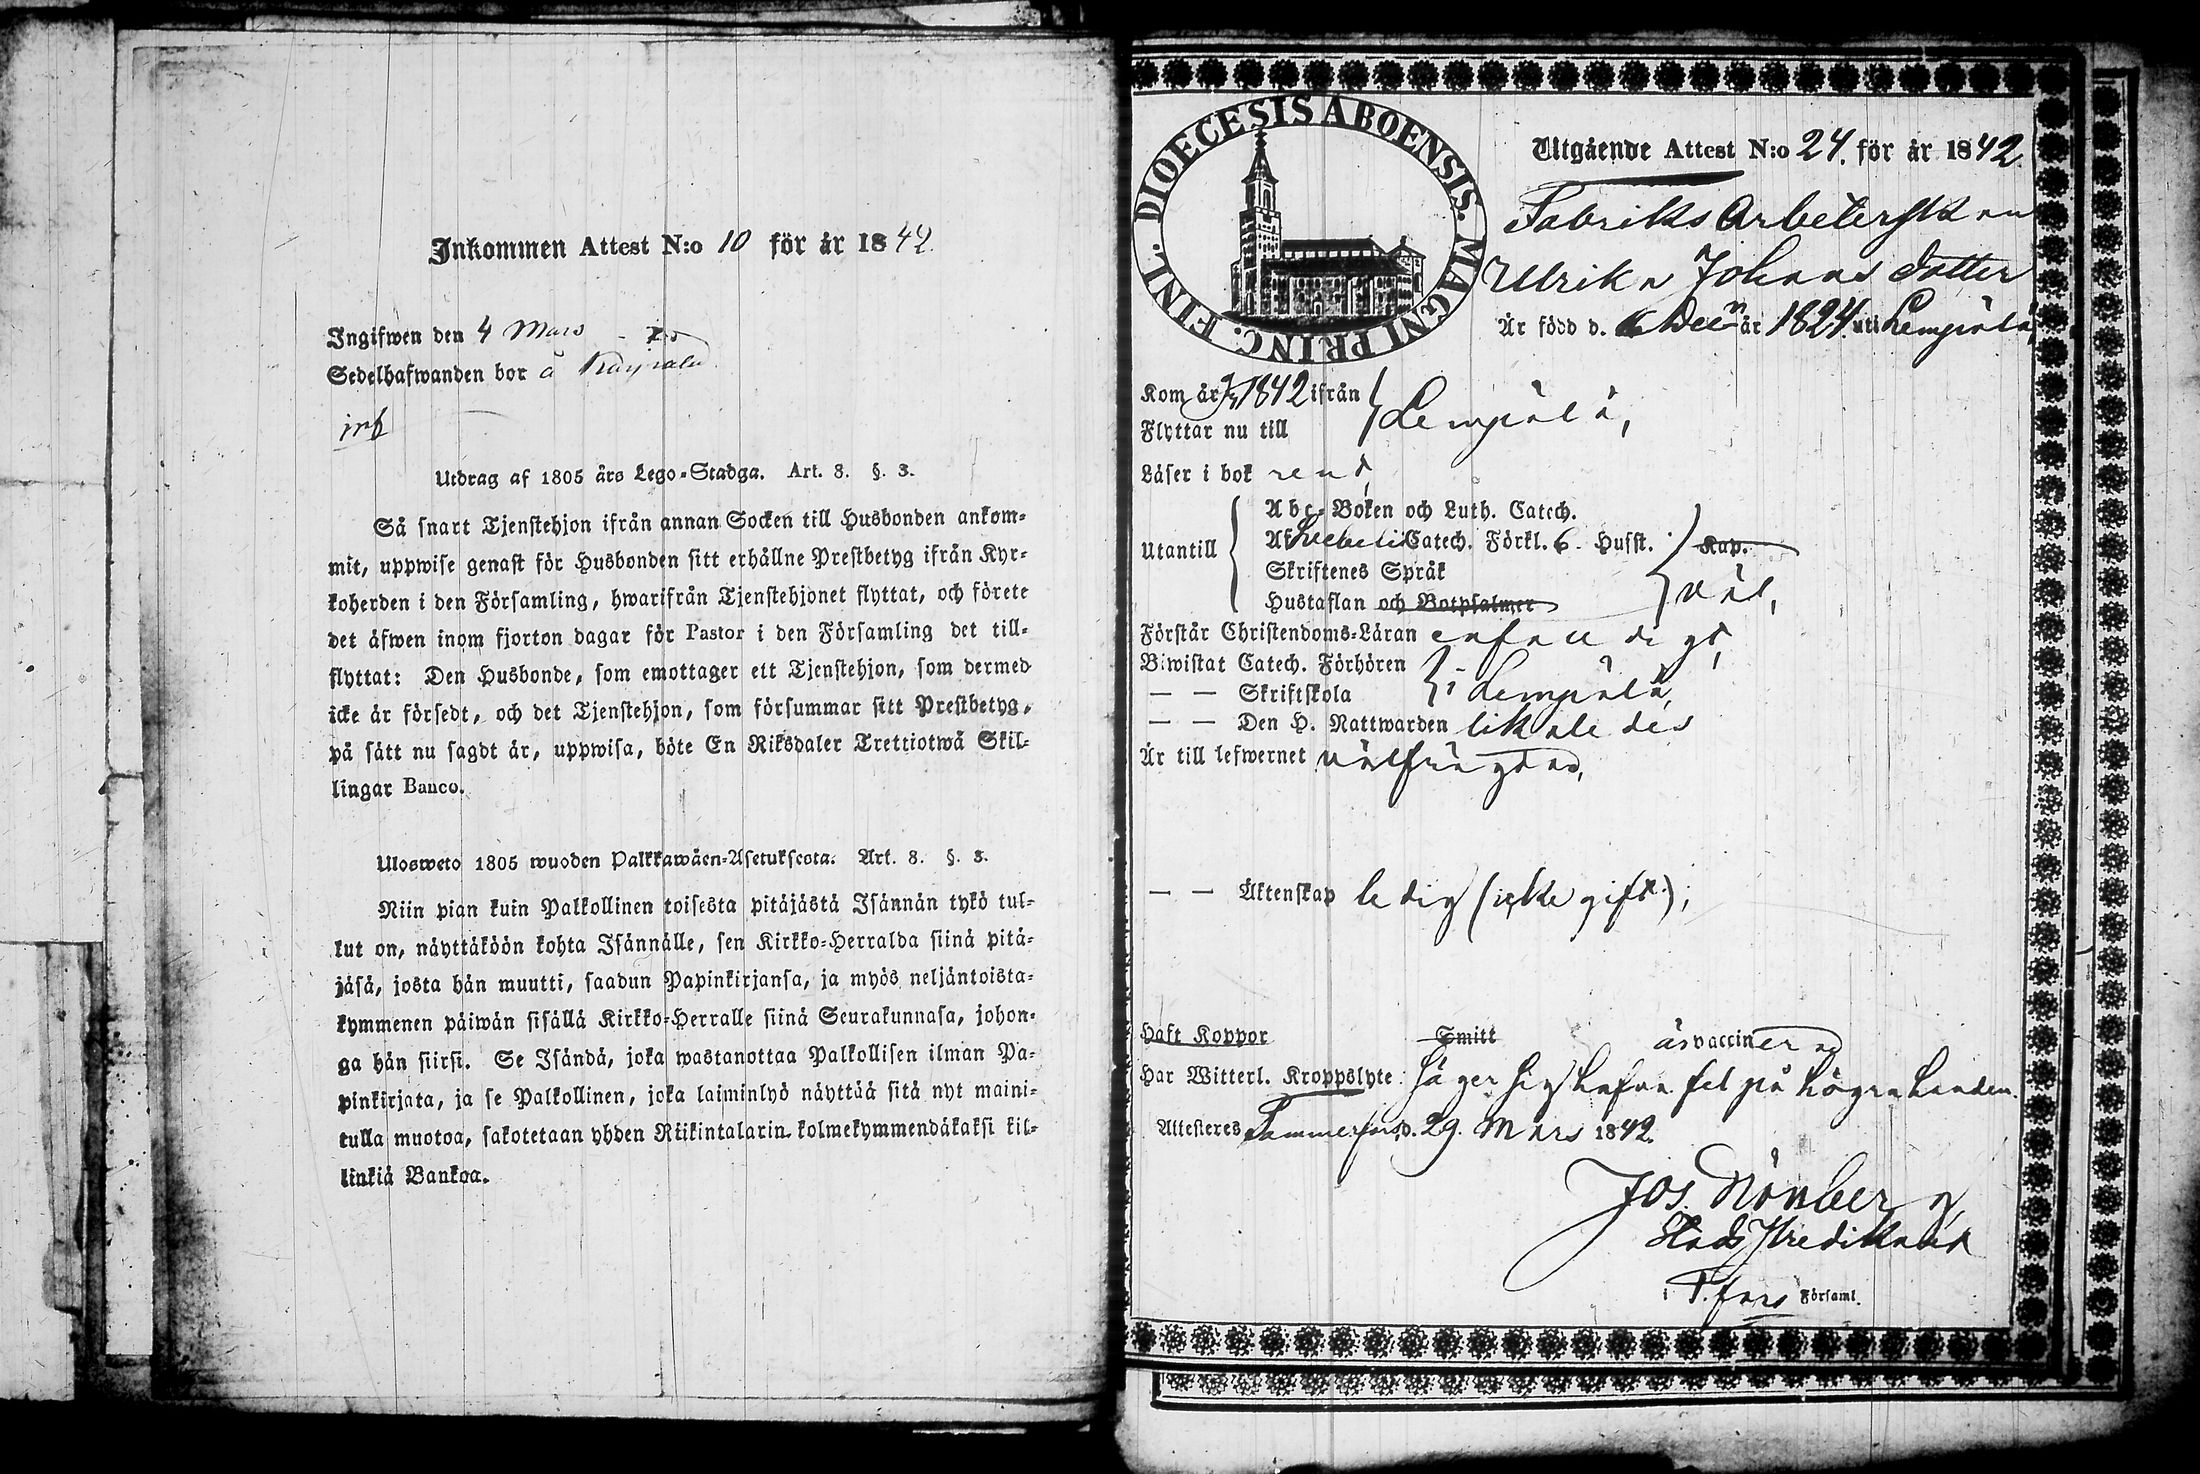 Inkommen Attest N:o 10 för år 1842.
Ingifwen den 4 Mars
Sedelhafwanden bor å
Utdrag af 1805 års Lego-Stadga. Art. 8. §. 3.
Så snart Tjenstehjon ifrån annan Socken till Husbonden ankom-
mit, uppwise genast för Husbonden sitt erhållne Prestbetyg ifrån Kyr-
koherden i den Församling, hwarifrån Tjenstehjonet flyttat, och förete
det äfwen inom fjorton dagar för Pastor i den Församling det till-
flyttat: Den Husbonde, som emottager ett Tjenstehjon, som dermed
icke är försedt, och det Tjenstehjon, som försummar sitt Prestbetyg,
på sätt nu sagdt är, uppwisa, böte En Riksdaler Trettiotwå Skil-
lingar Banco.
Ulosweto 1805 wuoden Palkkawäen-Asetuksesta. Art. 8. §. 3.
Niin pian kuin Palkollinen toisesta pitäjästä Isännän tykö tul-
kut on, näyttäköön kohta Isännälle, sen Kirkko-Herralda siinä pitä-
jäsä, josta hän muutti, saadun Papinkirjansa, ja myös neljäntoista-
kymmenen päiwän sisällä Kirkko-Herralle siinä Seurakunnasa, johon-
ga hän siirsi. Se Isändä, joka wastanottaa Palkollisen ilman Pa-
pinkirjata, ja se Palkollinen, joka laiminlyö näyttää sitä nyt maini-
tulla muotoa, sakotetaan yhden Riikintalarin kolmekymmendäkaksi kil-
linkiä Bankoa.
DIOECESIS ABOENSIS. MAGNI PRINC. FINL.
Utgående Attest N:o 24. för år 1842.
Fabriks Arbeterskan
Ulrika Johans dotter
Är född d. 6 Decn år 1824. uti Lempälä,
Kom år 1842 ifrån
Flyttar nu till Lempälä,
Läser i bok rent,
Abc-Boken och Luth. Catech.
Utantill Af Svebelii Catech. Förkl. 6. Husst. Kap.
Skriftenes Språk
Hustaflan och Botpsalmer väl,
Förstår Christendoms-Läran enfaldigt,
Biwistat Catech. Förhören
— — Skriftskola i Lempälä,
— — Den H. Nattwarden likaledes
Är till lefwernet välfrägdad,
— — Äktenskap ledig (icke gift);
Haft Koppor Smitt är vaccinerad
Har Witterl. Kroppslyte: säger sig hafva fel på högra handen.
Attesteres Tammerfors d. 29. Mars 1842.
Jos. Grönberg
Stads Predikant
i T.fors Församl.